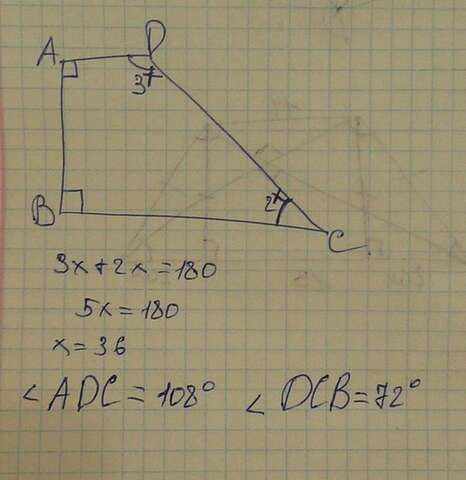 A D
3x
B 2x
C
3x+2x=180
5x=180
x=36
∠ADC=108° ∠DCB=72°